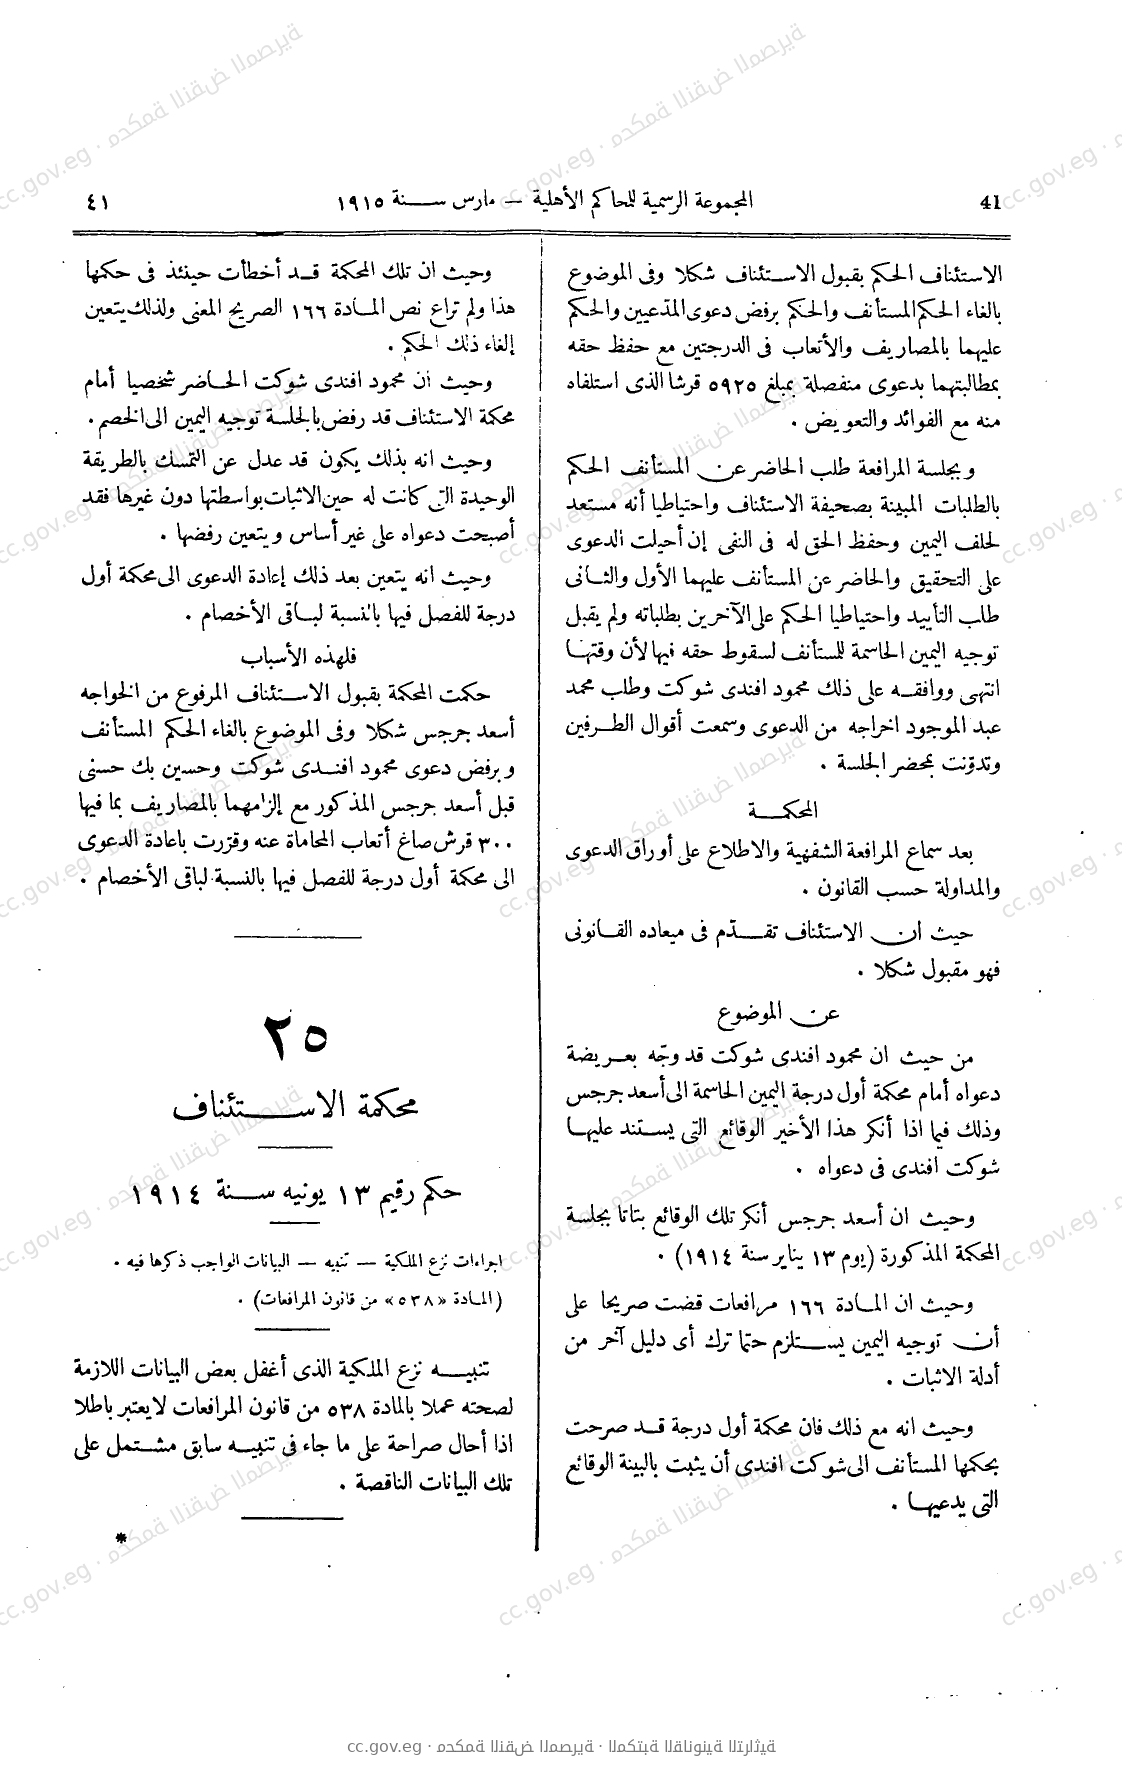 41
المجموعة الرسمية للمحاكم الأهلية — مارس سنة ١٩١٥
٤١
الاستئناف الحكم بقبول الاستئناف شكلا وفى الموضوع
بالغاء الحكم المستأنف والحكم برفض دعوى المدّعيين والحكم
عليهما بالمصاريف والأتعاب فى الدرجتين مع حفظ حقه
بمطالبتهما بدعوى منفصلة بمبلغ ٥٩٢٥ قرشا الذى استلفاه
منه مع الفوائد والتعويض .
وبجلسة المرافعة طلب الحاضر عن المستأنف الحكم
بالطلبات المبينة بصحيفة الاستئناف واحتياطيا أنه مستعد
لحلف اليمين وحفظ الحق له فى النفى إن أحيلت الدعوى
على التحقيق والحاضر عن المستأنف عليهما الأول والثانى
طلب التأييد واحتياطيا الحكم على الآخرين بطلباته ولم يقبل
توجيه اليمين الحاسمة للمستأنف لسقوط حقه فيها لأن وقتها
انتهى ووافقه على ذلك محمود افندى شوكت وطلب محمد
عبد الموجود اخراجه من الدعوى وسمعت أقوال الطرفين
وتدوّنت بمحضر الجلسة .
المحكمة
بعد سماع المرافعة الشفهية والاطلاع على أوراق الدعوى
والمداولة حسب القانون .
حيث ان الاستئناف تقدّم فى ميعاده القانونى
فهو مقبول شكلا .
عن الموضوع
من حيث ان محمود افندى شوكت قد وجّه بعريضة
دعواه أمام محكمة أول درجة اليمين الحاسمة الى أسعد جرجس
وذلك فيما اذا أنكر هذا الأخير الوقائع التى يستند عليها
شوكت افندى فى دعواه .
وحيث ان أسعد جرجس أنكر تلك الوقائع بتاتا بجلسة
المحكمة المذكورة (يوم ١٣ يناير سنة ١٩١٤) .
وحيث ان المادة ١٦٦ مرافعات قضت صريحا على
أن توجيه اليمين يستلزم حتما ترك أى دليل آخر من
أدلة الاثبات .
وحيث انه مع ذلك فان محكمة أول درجة قد صرحت
بحكمها المستأنف الى شوكت افندى أن يثبت بالبينة الوقائع
التى يدعيها .
وحيث ان تلك المحكمة قد أخطأت حينئذ فى حكمها
هذا ولم تراع نص المادة ١٦٦ الصريح المعنى ولذلك يتعين
إلغاء ذلك الحكم .
وحيث ان محمود افندى شوكت الحاضر شخصيا أمام
محكمة الاستئناف قد رفض بالجلسة توجيه اليمين الى الخصم .
وحيث انه بذلك يكون قد عدل عن التمسك بالطريقة
الوحيدة التى كانت له حين الاثبات بواسطتها دون غيرها فقد
أصبحت دعواه على غير أساس ويتعين رفضها .
وحيث انه يتعين بعد ذلك إعادة الدعوى الى محكمة أول
درجة للفصل فيها بالنسبة لباقى الأخصام .
فلهذه الأسباب
حكمت المحكمة بقبول الاستئناف المرفوع من الخواجه
أسعد جرجس شكلا وفى الموضوع بالغاء الحكم المستأنف
وبرفض دعوى محمود افندى شوكت وحسين بك حسنى
قبل أسعد جرجس المذكور مع إلزامهما بالمصاريف بما فيها
٣٠٠ قرش صاغ أتعاب المحاماة عنه وقرّرت باعادة الدعوى
الى محكمة أول درجة للفصل فيها بالنسبة لباقى الأخصام .
٢٥
محكمة الاستئناف
حكم رقيم ١٣ يونيه سنة ١٩١٤
اجراءات نزع الملكية — تنبيه — البيانات الواجب ذكرها فيه .
(المادة «٥٣٨» من قانون المرافعات) .
تنبيه نزع الملكية الذى أغفل بعض البيانات اللازمة
لصحته عملا بالمادة ٥٣٨ من قانون المرافعات لا يعتبر باطلا
اذا أحال صراحة على ما جاء فى تنبيه سابق مشتمل على
تلك البيانات الناقصة .
*
cc.gov.eg · محكمة النقض المصرية · المكتبة القانونية التراثية